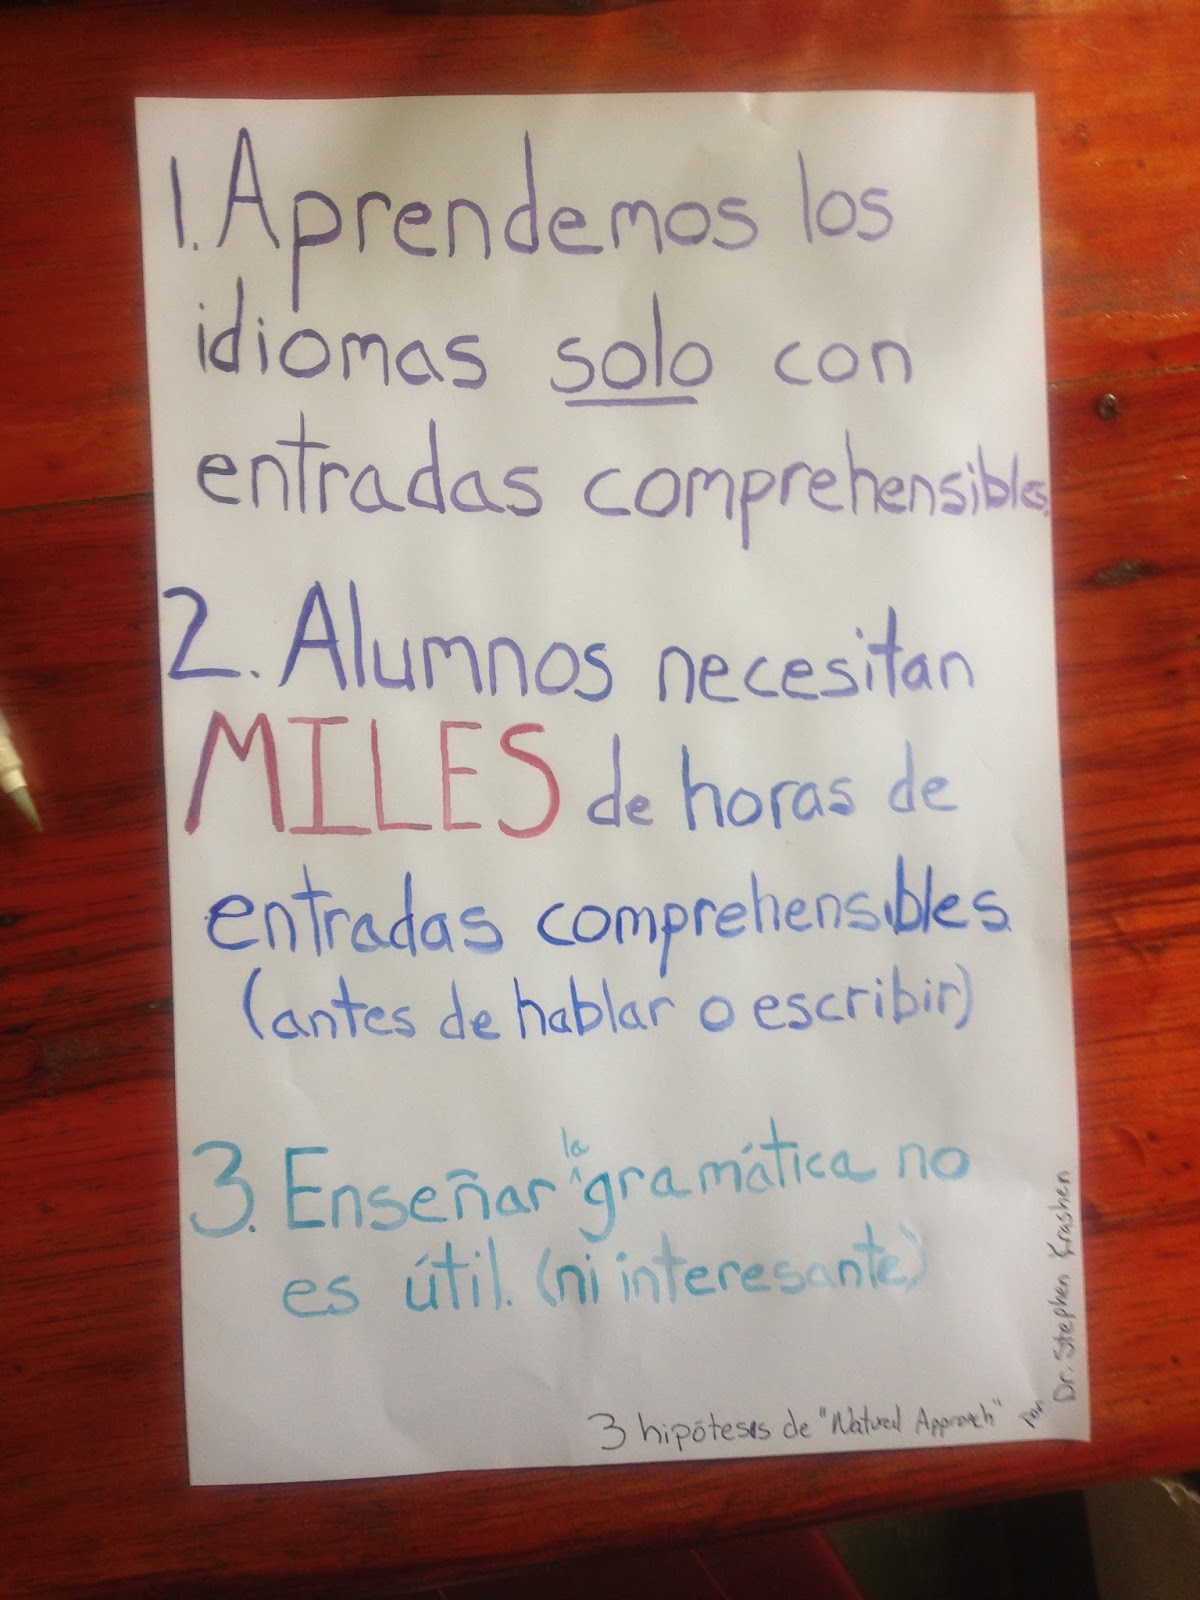 1. Aprendemos los
idiomas solo con
entradas comprehensibles.
2. Alumnos necesitan
MILES de horas de
entradas comprehensibles
(antes de hablar o escribir)
3. Enseñar la gramática no
es útil. (ni interesante)
3 hipóteses de "Natural Approach" por
Dr. Stephen Krashen